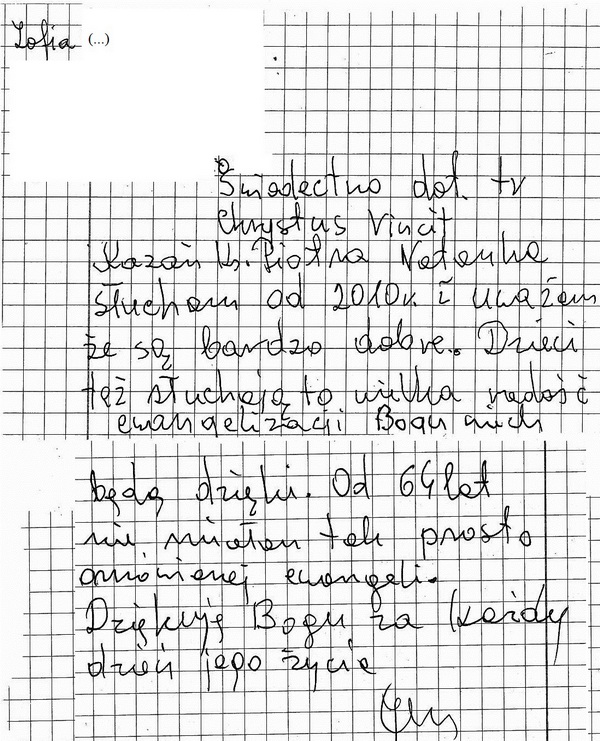 Zofia (...)
Świadectwo dot. tv
Chrystus Vincit
Kazań ks. Piotra Natanka
słucham od 2010r. i uważam
że są bardzo dobre. Dzieci
też słuchają to wielka radość
ewangelizacji Bogu niech
będą dzięki. Od 64 lat
nie miałam tak prosto
omówionej ewangeli.
Dziękuję Bogu za każdy
dzień jego życia